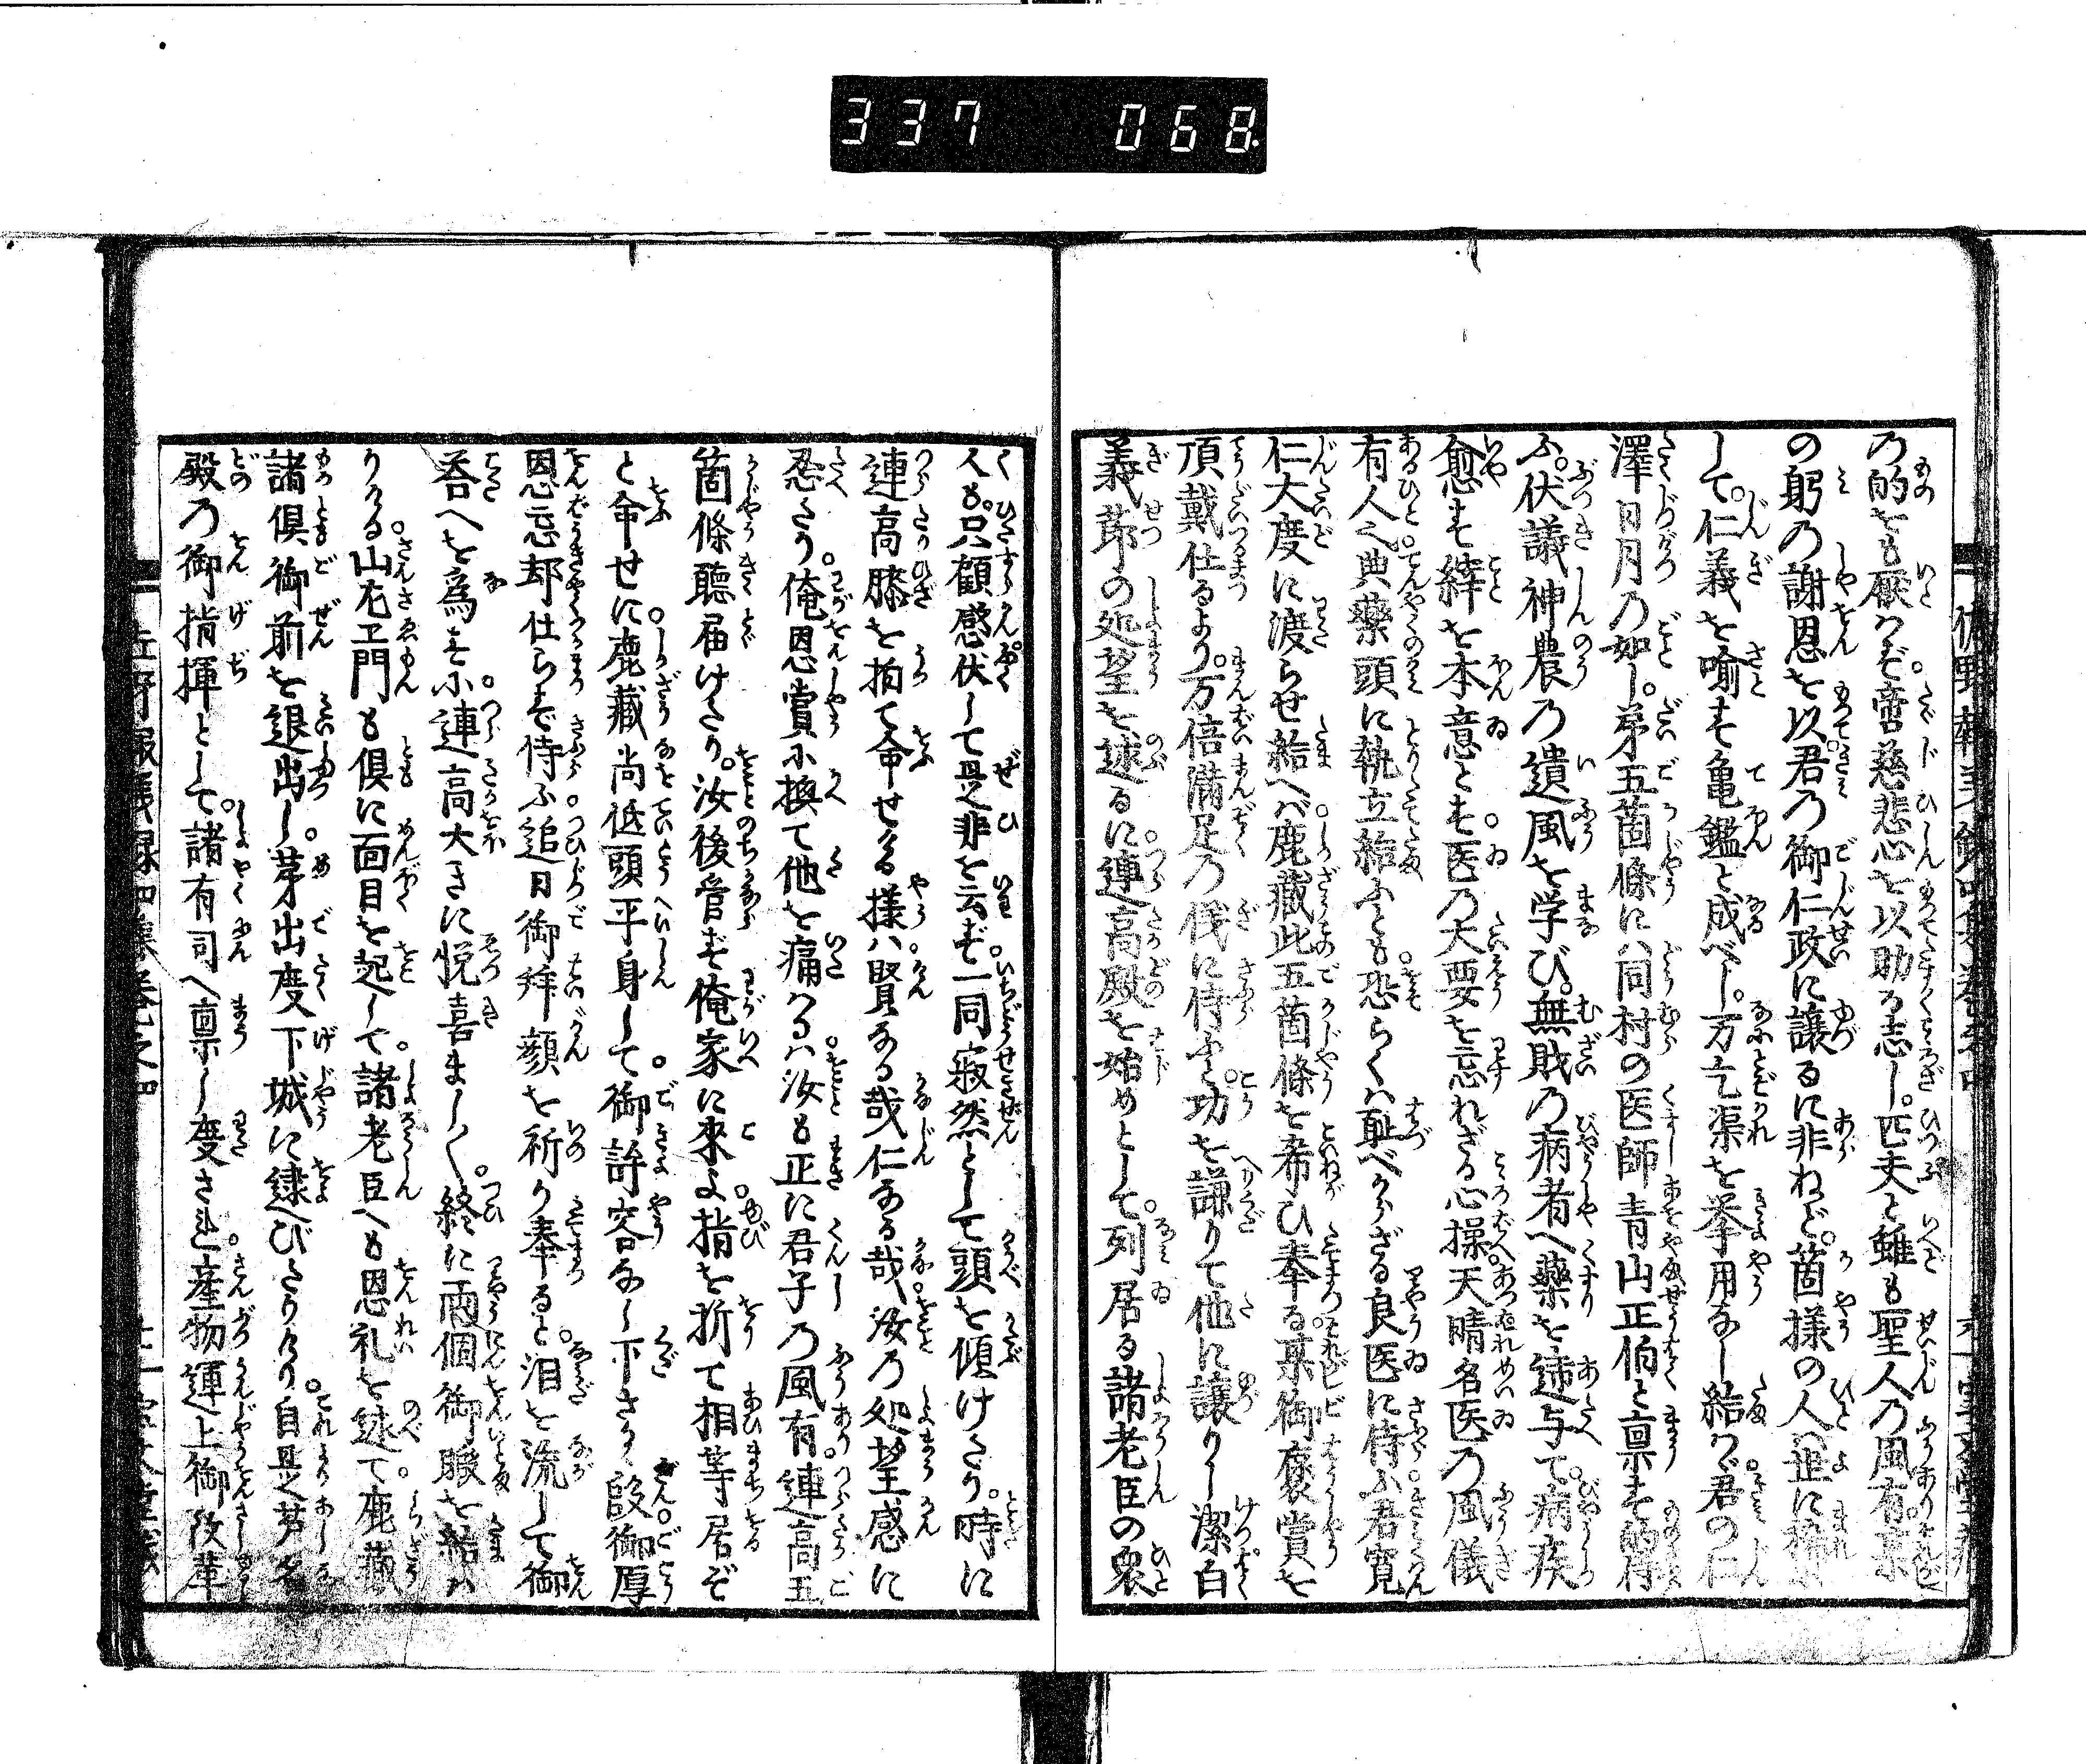 337 068
乃的をも厭はず。啻慈悲心を以助る志し。匹夫と雖も聖人乃風有。某
の躬の謝恩を以。君乃御仁政に譲るに非ねど。箇様の人世に稀に
して。仁義を喩す亀鑑と成べし。万乞渠を挙用なし給はゞ。君の仁
澤日月乃如し。第五箇條に同村の医師青山正伯と禀す的侍
ふ。伏議神農乃遺風を学び。無財乃病者へ薬を施与て。病疾
愈す縡を本意とす。医乃大要を忘れざる心操。天晴名医乃風儀
有人。典薬頭に執立給ふとも。恐らくは恥べからざる良医に侍ふ。君寛
仁大度に渡らせ給へば。鹿蔵此五箇條を希ひ奉る。某御褒賞を
頂戴仕るより。万倍満足乃儀に侍ふと。功を謙りて他に譲りし潔白
義節の処望を述るに。連高殿を始めとして。列居る諸老臣の衆
人も。只顧感伏して是非を云ず。一同寂然として頭を傾けたり。時に
連高膝を拍て命せる様は。賢なる哉仁なる哉。汝乃処望感に
忍たり。俺恩賞に換て他を痛はるは。汝も正に君子乃風有。連高五
箇條聴届けたり。汝後管ず俺家に来よ。指を折て相等居ぞ
と命せに。鹿蔵尚低頭平身して。御許容なし下さる段。御厚
恩忘却仕らず侍ふ。追日御拝顔を祈り奉ると。泪を流して御
答へを為すに。連高大きに悦喜まし〳〵。終に両個御暇を給は
りける。山左エ門も倶に面目を起して。諸老臣へも恩礼を述て。鹿蔵
諸倶御前を退出し。芽出度下城に逮びたりけり。自是芦名
殿乃御指揮として。諸有司へ禀し度され。産物運上御改革